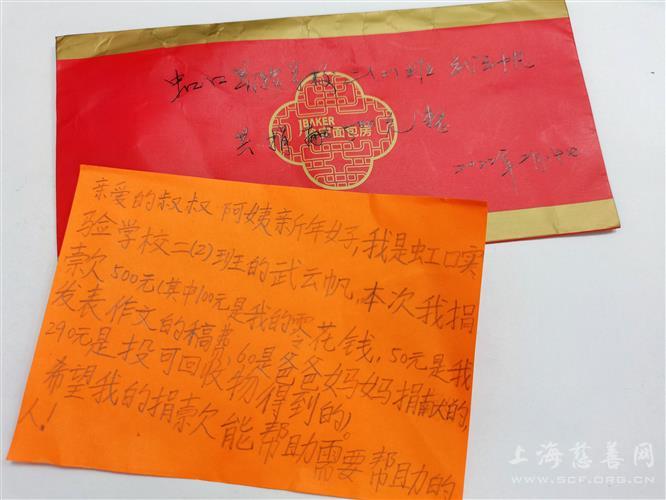 虹口实验学校二(2)班 武云帆
共捐 元整
2022年2月
JBAKER
面包房
亲爱的叔叔 阿姨新年好,我是虹口实
验学校二(2)班的武云帆,本次我捐
款500元(其中100元是我的零花钱,50元是我
发表作文的稿费,60是爸爸妈妈捐献的,
290元是投可回收物得到的)。
希望我的捐款能帮助需要帮助的
人!
上海慈善网
WWW.SCF.ORG.CN